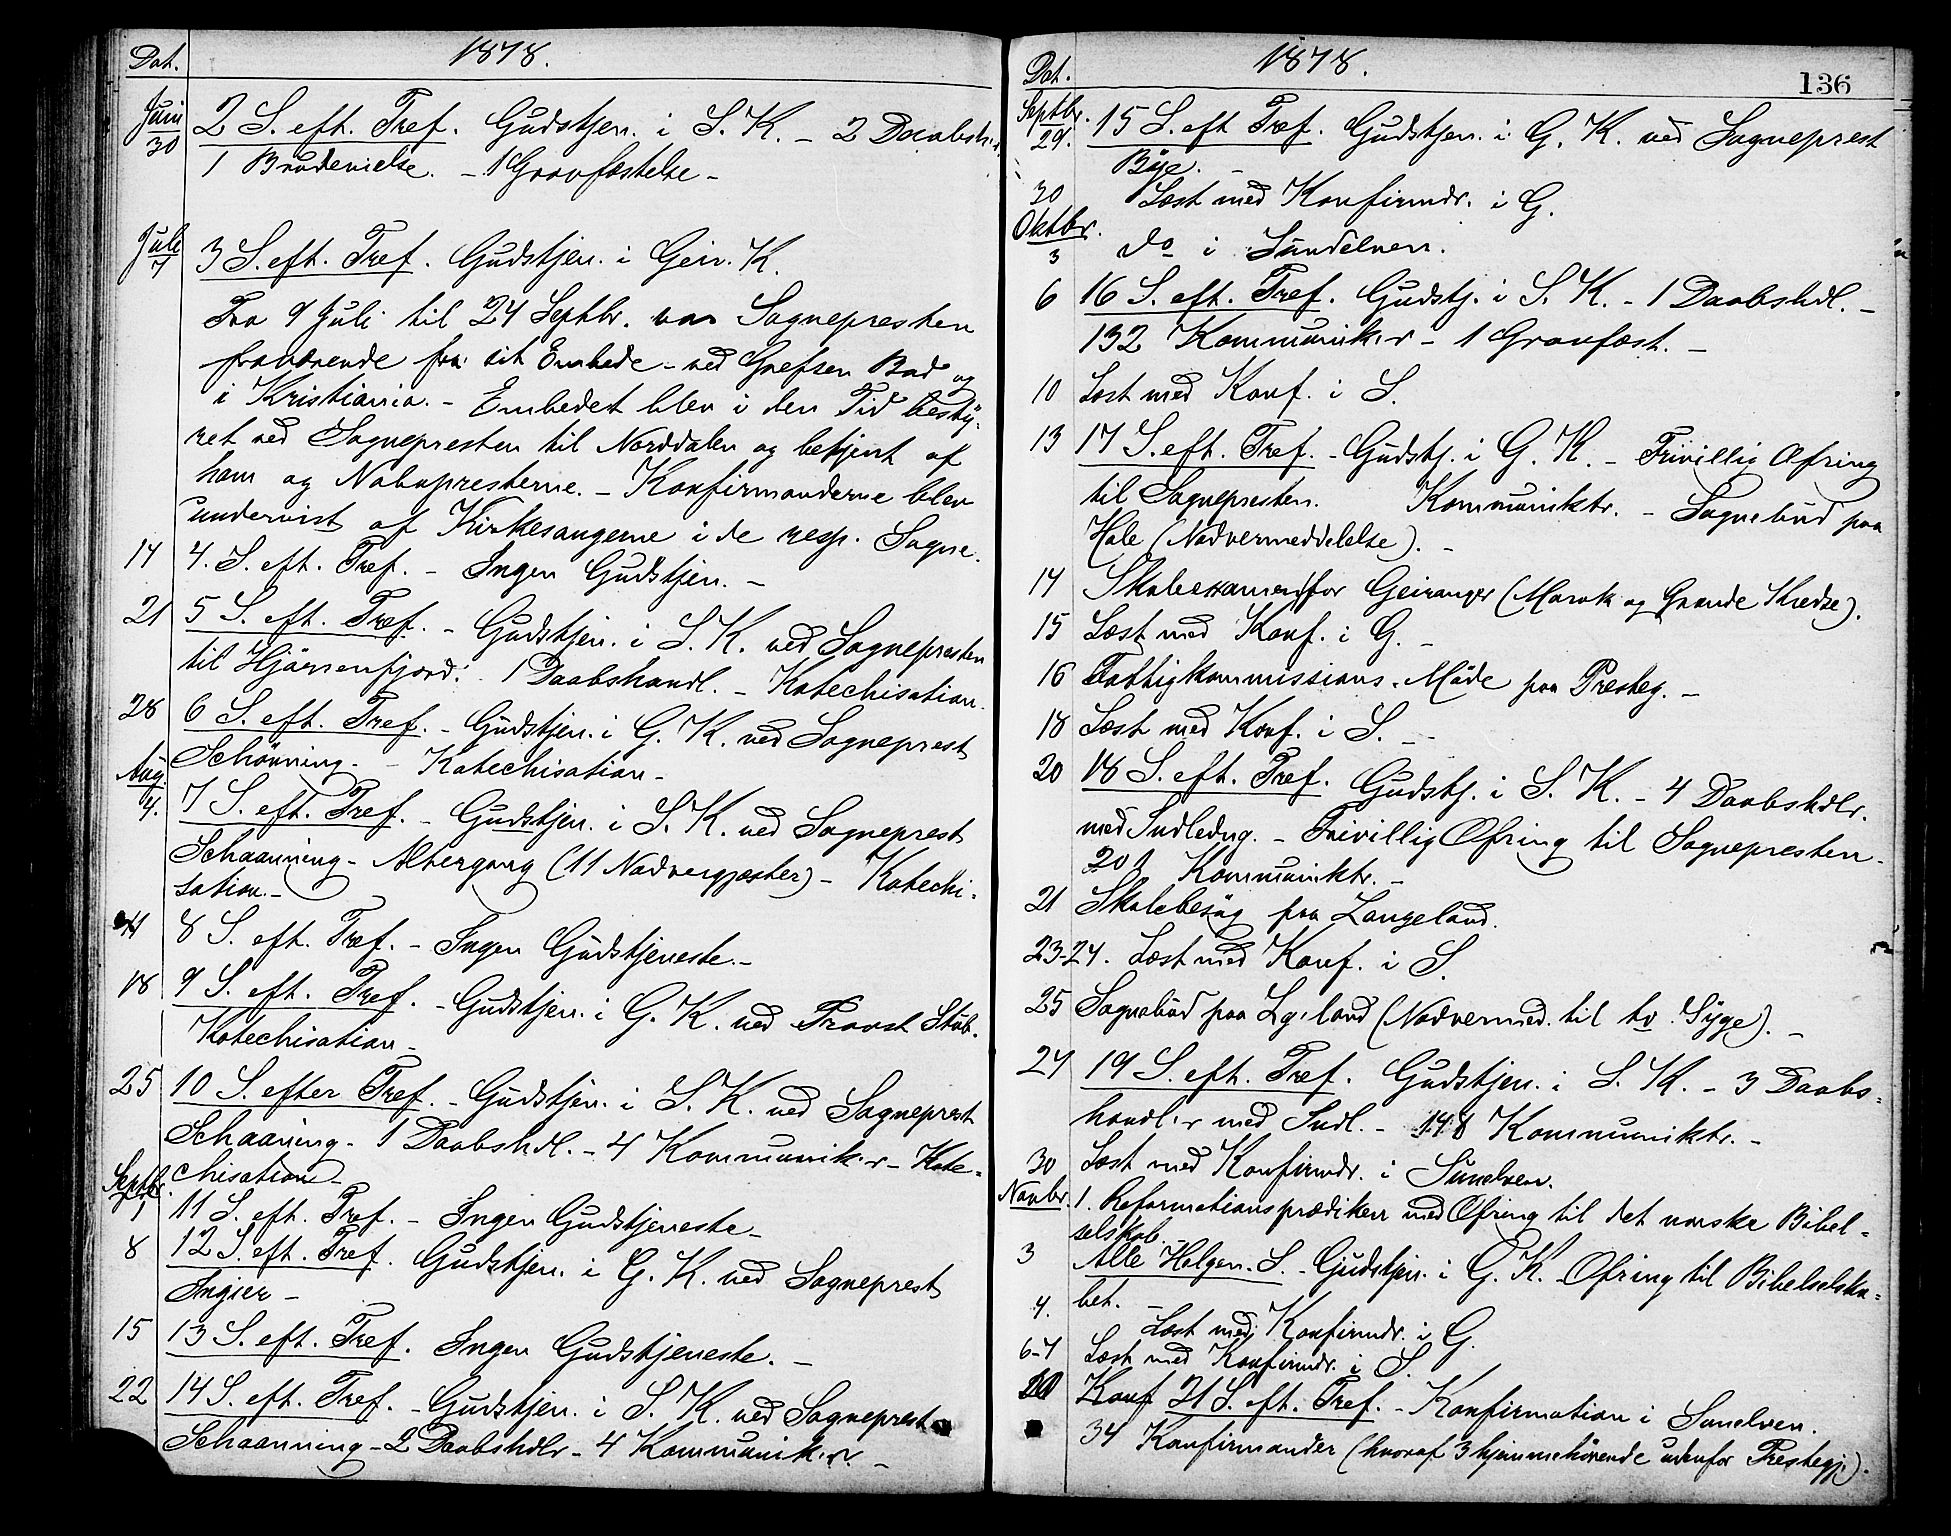 Dat. 1878.
Juni
30 2 S. eft. Tref. Gudstjen. i S. K. – 2 Daabsh.
1 Brudevielse. – 1 Gravfæstelse –
Juli
7 3 S. eft. Tref. Gudstjen. i Geir. K.
Fra 9 Juli til 24 Septbr. var Sognepresten
fraværende fra sit Embede – ved Grefsen Bad og
i Kristiania. – Embedet blev i den Tid besty-
ret ved Sognepresten til Norddalen og betjent af
ham og Nabopresterne. – Konfirmanderne blev
undervist af Kirkesangerne i de resp. Sogne.
14 4. S. eft. Tref. – Ingen Gudstjen. –
21 5 S. eft. Tref. – Gudstjen. i S. K. ved Sognepresten
til Hjørrenfjord: 1 Daabshandl. – Katechisation.
28 6 S. eft. Tref. – Gudstjen. i G. K. ved Sogneprest
Schönning. – Katechisation –
Aug.
4. 7 S. eft. Tref. – Gudstjen. i S. K. ved Sogneprest
Schaanning – Altergang (11 Nadvergjæster) – Katechi-
sation –
11 8 S. eft. Tref. – Ingen Gudstjeneste –
18 9 S. eft. Tref. – Gudstjen. i G. K. ved Provst Stub.
Katechisation –
25 10 S. efter Tref. – Gudstjen. i S. K. ved Sogneprest
Schaaning – 1 Daabshdl. – 4 Kommunik.r – Kate-
chisation –
Septbr.
1 11 S. eft. Tref. – Ingen Gudstjeneste –
8 12 S. eft. Tref. Gudstjen. i G. K. ved Sogneprest
Ingier –
15 13 S. eft. Tref. Ingen Gudstjeneste. –
22 14 S. eft. Tref. – Gudstjen. i S. K. ved Sogneprest
Schaanning – 2 Daabshdlr – 4 Kommunik.r. –
Dat. 1878. 136
Septbr.
29. 15 S. eft Tref. Gudstjen. i G. K. ved Sogneprest
Bøje. –
30 Læst med Konfirmdr. i G.
Oktbr.
3 do i Sundelven.
6 16 S. eft. Tref. Gudstj. i S. K. – 1 Daabshdl. –
132 Kommunik.r – 1 Gravfæst. –
10 Læst med Konf. i S.
13 17 S. eft. Tref. – Gudstj. i G. K. – Frivillig Ofring
til Sognepresten. Kommuniktr. – Sognebud paa
Hole (Nadvermeddelelse). –
14 Skoleexamen for Geiranger (Marok og Grande Kredse).
15 Læst med Konf. i G. –
16 Fattigkommissions-Møde paa Presteg. –
18 Læst med Konf. i S. –
20 18 S. eft. Tref. Gudstj. i S. K. – 4 Daabshdlr.
med Indledng. – Frivillig Ofring til Sognepresten –
201 Kommuniktr. –
21 Skolebesøg paa Langeland.
23-24. Læst med Konf. i S.
25 Sognebud paa Lg.land (Nadvermed. til to Syge). –
27 19 S. eft. Tref. Gudstjen. i S. K. – 3 Daabs-
handl.r med Indl. – 148 Kommuniktr. –
30 Læst med Konfirmdr. i Sunelven.
Novbr. 1. Reformationsprædiken med Ofring til det norske Bibel-
selskab. –
3 Alle Helgen. S. Gudstjen. i G. K. – Ofring til Bibelselska-
bet. –
4. Læst med Konfirmdr. i G.
6-7 Læst med Konfirmdr. i S.
10 Konf 21 S. eft. Tref. – Konfirmation i Sunelven.
34 Konfirmander (hvoraf 3 hjemmehørende udenfor Prestegj.).